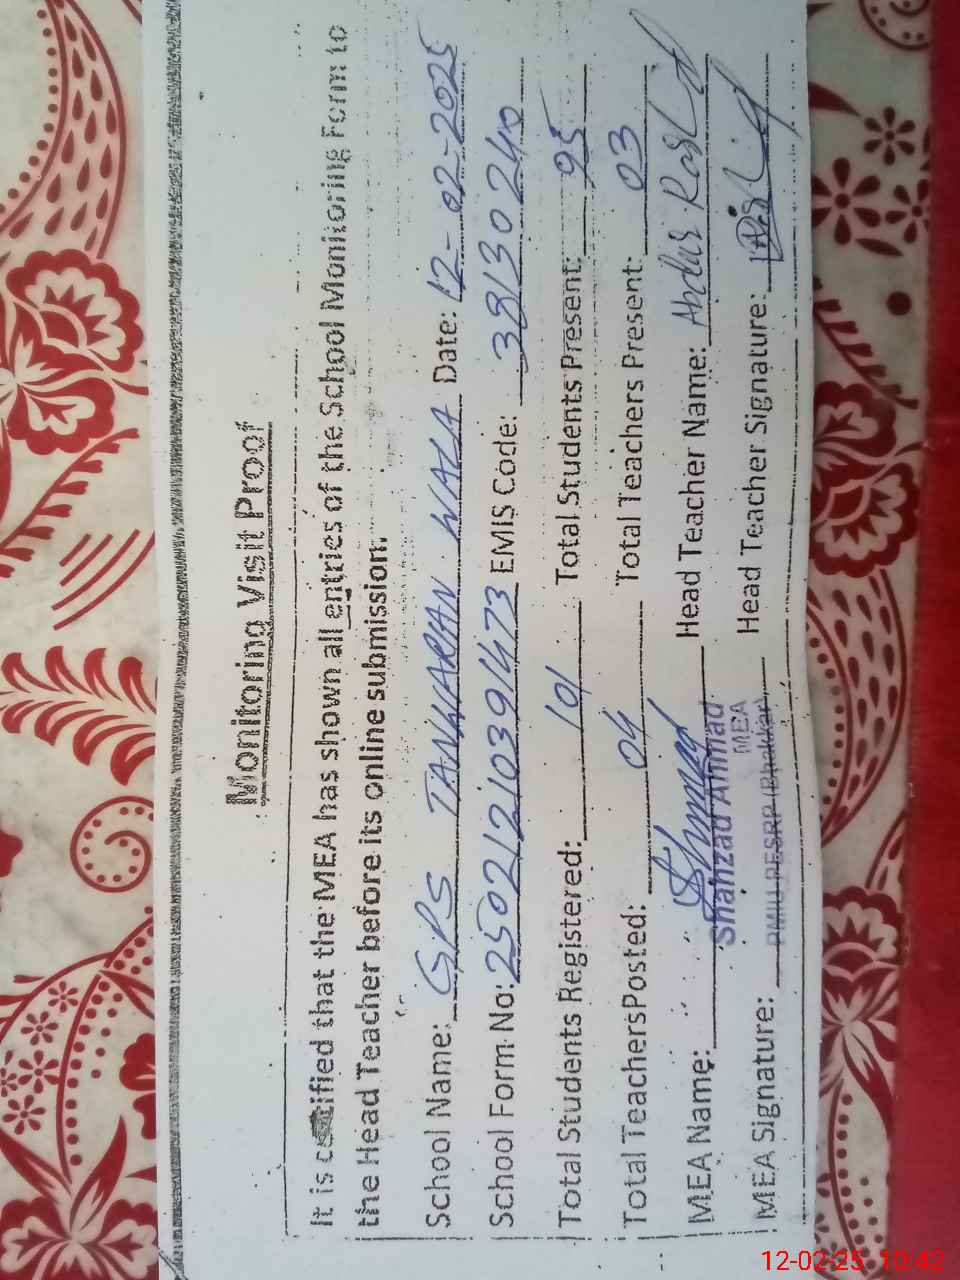 Monitoring Visit Proof
It is certified that the MEA has shown all entries of the School Monitoring Form to
the Head Teacher before its online submission.
School Name: GPS TANWARIAN WALA Date: 12-02-2025
School Form No: 25021210391473 EMIS Code: 38130240
Total Students Registered: 101 Total Students Present: 95
Total Teachers Posted: 04 Total Teachers Present: 03
MEA Name: Shahzad Ahmad Head Teacher Name: Abdul Rashid
MEA
MEA Signature: PMIU PESRP (Bhakkar) Head Teacher Signature:
12-02-25 10:42